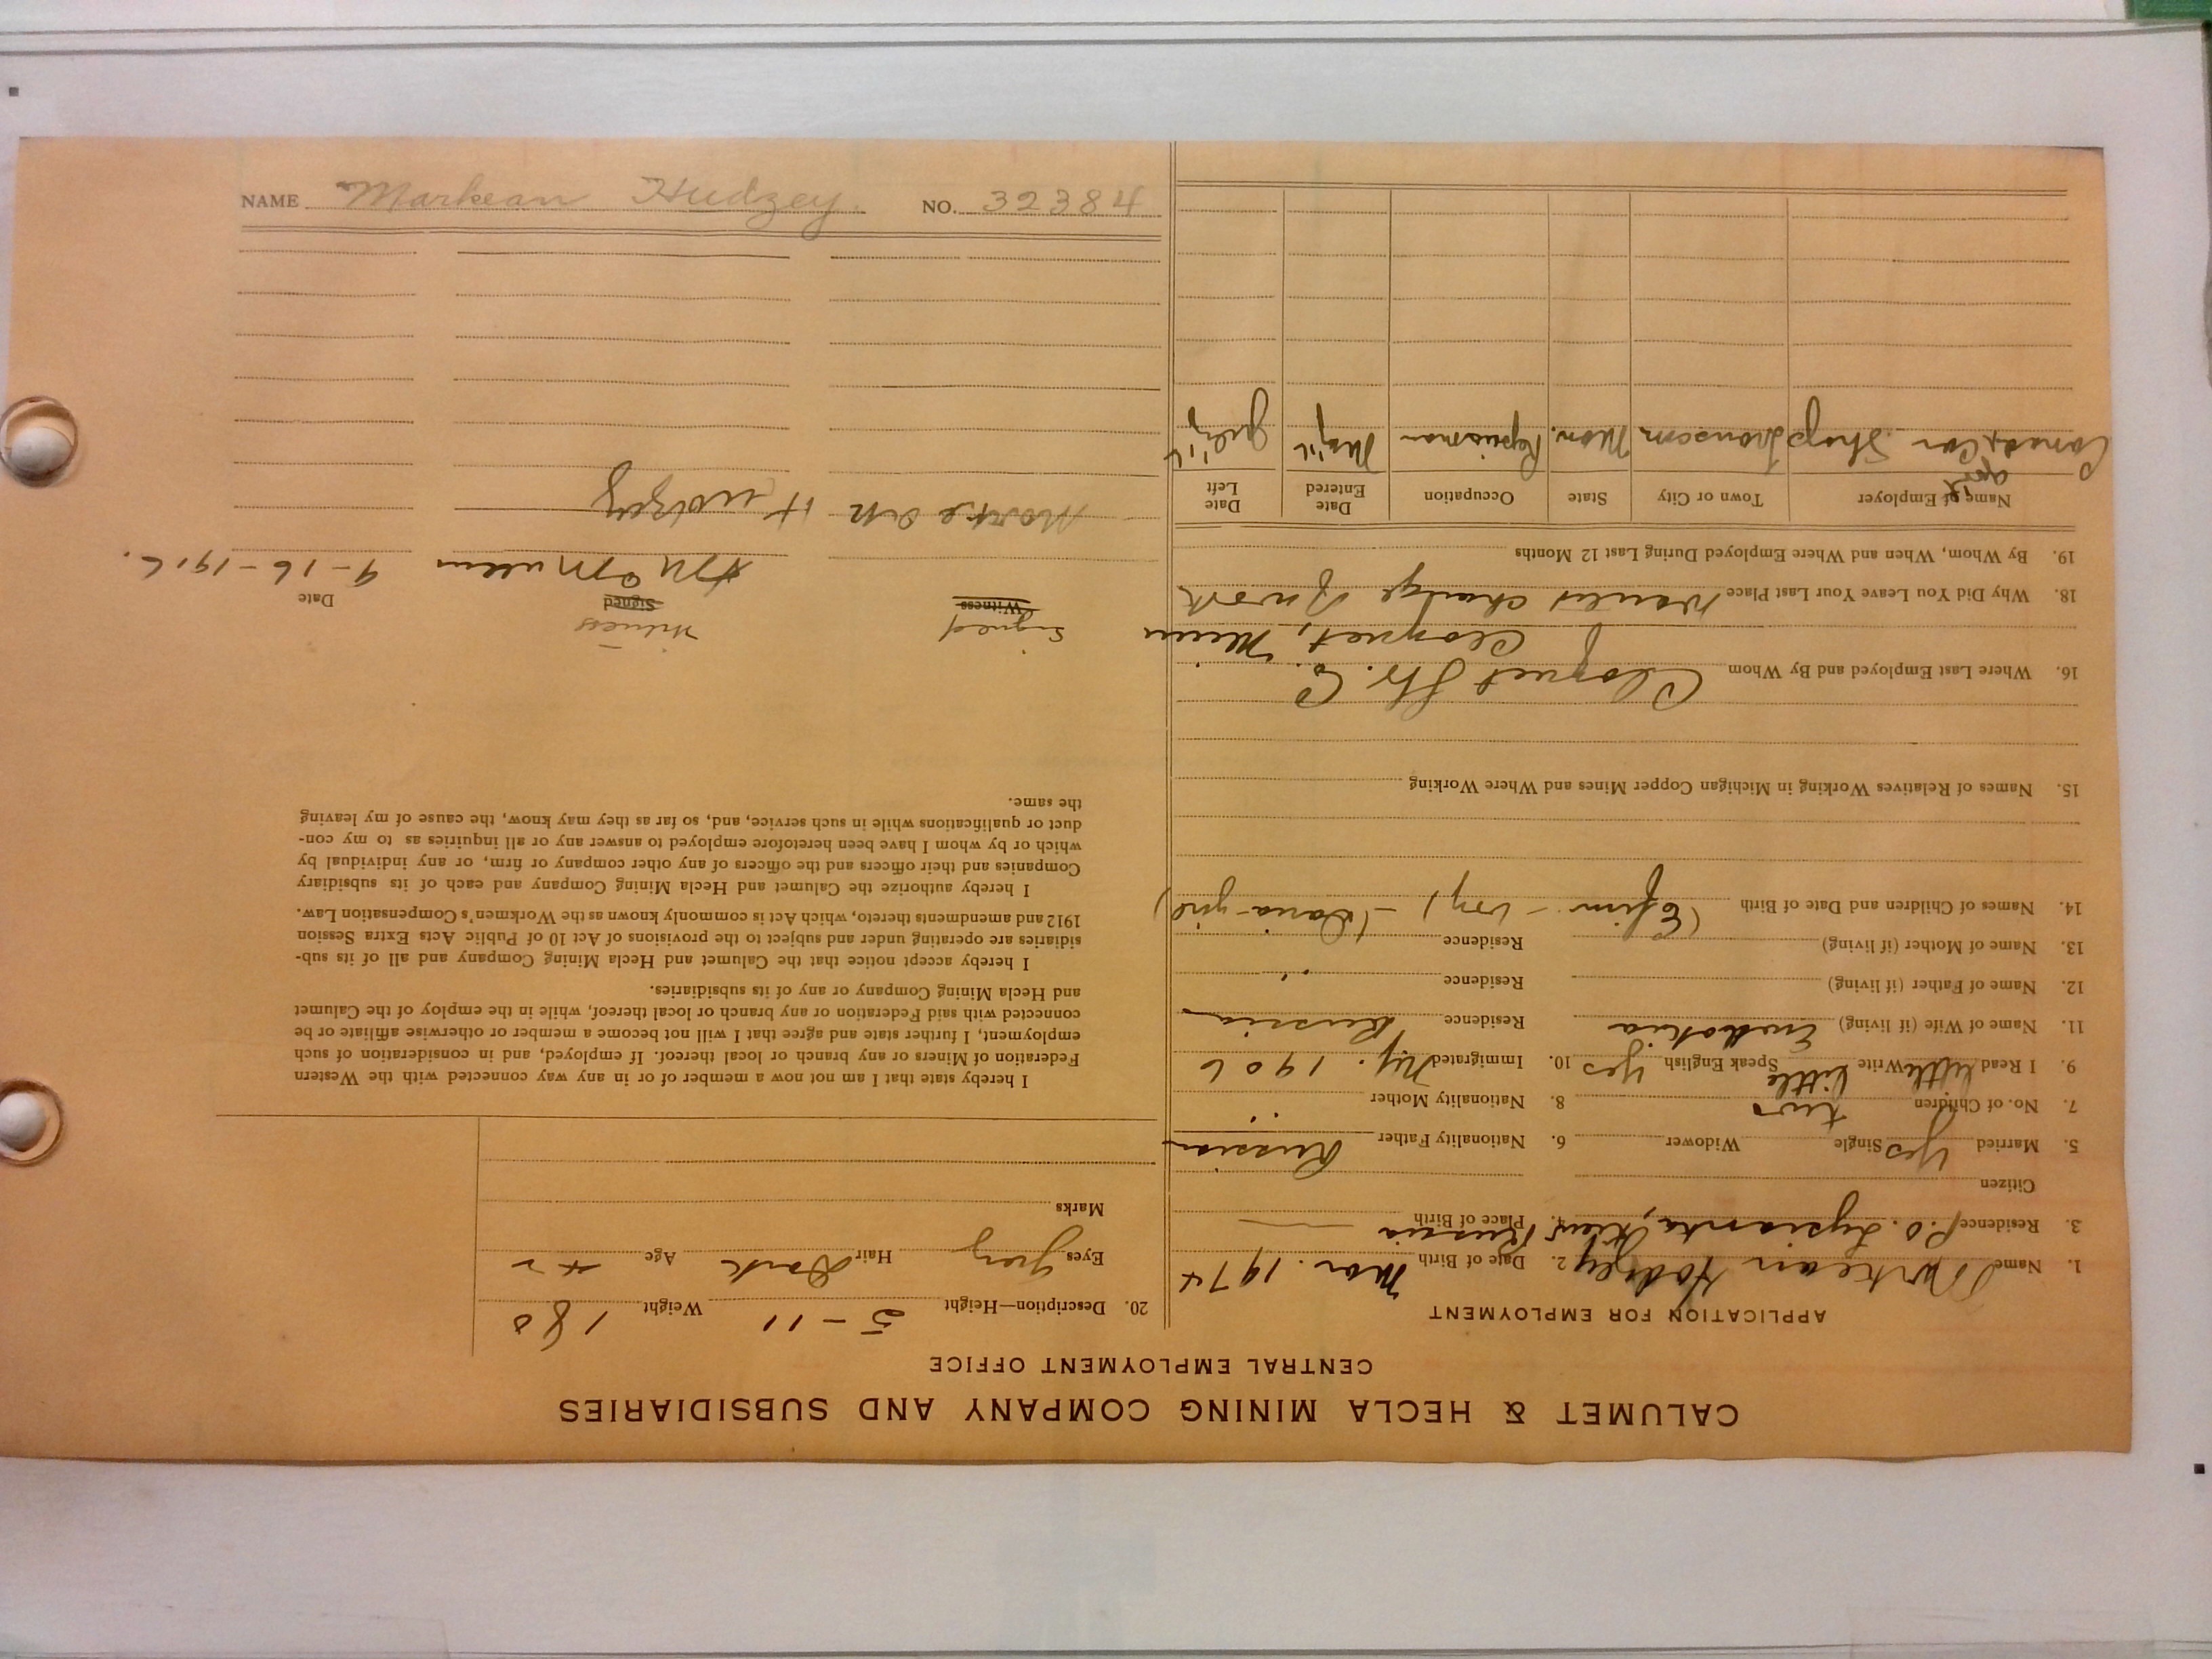 CALUMET & HECLA MINING COMPANY AND SUBSIDIARIES
CENTRAL EMPLOYMENT OFFICE
APPLICATION FOR EMPLOYMENT
1. Name Markean Hodzey 2. Date of Birth Mar. 1974
3. Residence P.O. Lysianka, Kiew, Russia 4. Place of Birth
Citizen
5. Married Yes Single Widower 6. Nationality Father Russian
7. No. of Children two 8. Nationality Mother "
9. I Read little Write little Speak English yes 10. Immigrated Ny. 1906
11. Name of Wife (if living) Residence Russia
12. Name of Father (if living) Residence
13. Name of Mother (if living) Residence
14. Names of Children and Date of Birth (Efim - boy) - (Daria - girl)
15. Names of Relatives Working in Michigan Copper Mines and Where Working
16. Where Last Employed and By Whom Cloquet Co.
Cloquet, Minn
18. Why Did You Leave Your Last Place Wanted change of work
19. By Whom, When and Where Employed During Last 12 Months
Name of Employer Town or City State Occupation Date Entered Date Left
Canada Car Shop Transcona Man. Repairman
20. Description—Height 5-11 Weight 180
Eyes Grey Hair Dark Age 42
Marks
I hereby state that I am not now a member of or in any way connected with the Western
Federation of Miners or any branch or local thereof. If employed, and in consideration of such
employment, I further state and agree that I will not become a member or otherwise affiliate or be
connected with said Federation or any branch or local thereof, while in the employ of the Calumet
and Hecla Mining Company or any of its subsidiaries.
I hereby accept notice that the Calumet and Hecla Mining Company and all of its sub-
sidiaries are operating under and subject to the provisions of Act 10 of Public Acts Extra Session
1912 and amendments thereto, which Act is commonly known as the Workmen's Compensation Law.
I hereby authorize the Calumet and Hecla Mining Company and each of its subsidiary
Companies and their officers and the officers of any other company or firm, or any individual by
which or by whom I have been heretofore employed to answer any or all inquiries as to my con-
duct or qualifications while in such service, and, so far as they may know, the cause of my leaving
the same.
Signed Witness
Witness Signed Date
9-16-1916.
Markean Hudzey
NAME Markean Hudzey. NO. 32384